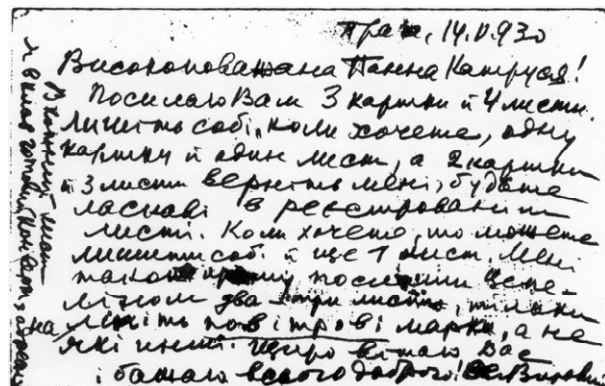 Прага, 14.V.930
Високоповажана Панна Катруся!
Посилаю Вам 3 картки й 4 листи.
Лишіть собі, коли хочете, одну
картку й один лист, а 2 картки
й 3 листи верніть мені, будьте
ласкаві в реєстрованім
листі. Коли хочете, то можете
лишити собі й ще 1 лист. Мені
також прошу послати Цепе-
ліном два-три листи, тільки
на, ліпіть повітрові марки, а не
які инші. Щиро вітаю Вас
і бажаю всього доброго!
В кожний лист
я вклав готовий конверт з адресою